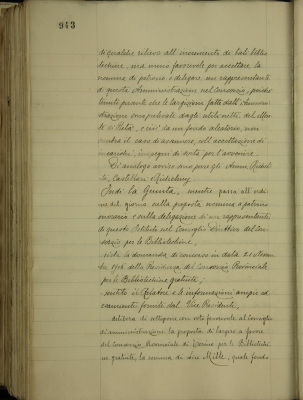 943
di qualche rilievo all'incremento di tali biblio
techine, era meno favorevole per accettare la
nomina di patrono e delegare un rappresentante
di questa Amministrazione nel Consorzio, poichè
tenuto presente che le largizioni fatte dall'Ammini
strazione sono prelevate dagli utili netti del Mon
te di Pietà, e cioè da un fondo aleatorio, non
sembra il caso di assumere, coll'accettazione di
impegni di sorta per l'avvenire.
Di analogo avviso sono pure gli Amm.
Castellari
Quindi la Giunta, mentre passa all'ordi
ne del giorno sulla proposta nomina a patrono
onorario e sulla delegazione di un rappresentante
di questo Istituto nel Consiglio Direttivo del Con
sorzio per le Bibliotechine;
vista la domanda di concorso in data 21
1916 della Presidenza del Consorzio Provinciale
per le Bibliotechine gratuite;
sentito il Relatore e le informazioni ampie ed
esaurienti fornite dal Vice Presidente,
delibera di sottoporre con voto favorevole al Consiglio
di amministrazione la proposta di largire a favore
del Consorzio Provinciale di Torino per le Bibliotechi
ne gratuite, la somma di Lire Mille, quale fondo